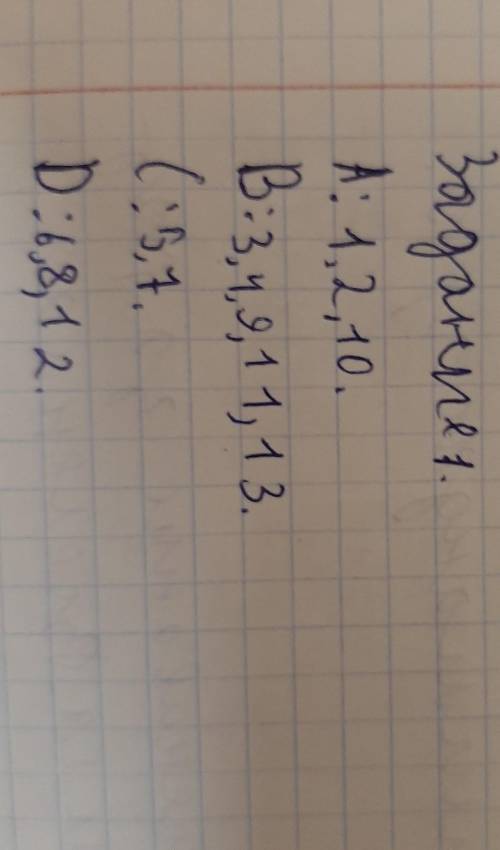 Задание 1.
A: 1, 2, 10.
B: 3, 4, 9, 11, 13.
C: 5, 7.
D: 6, 8, 12.